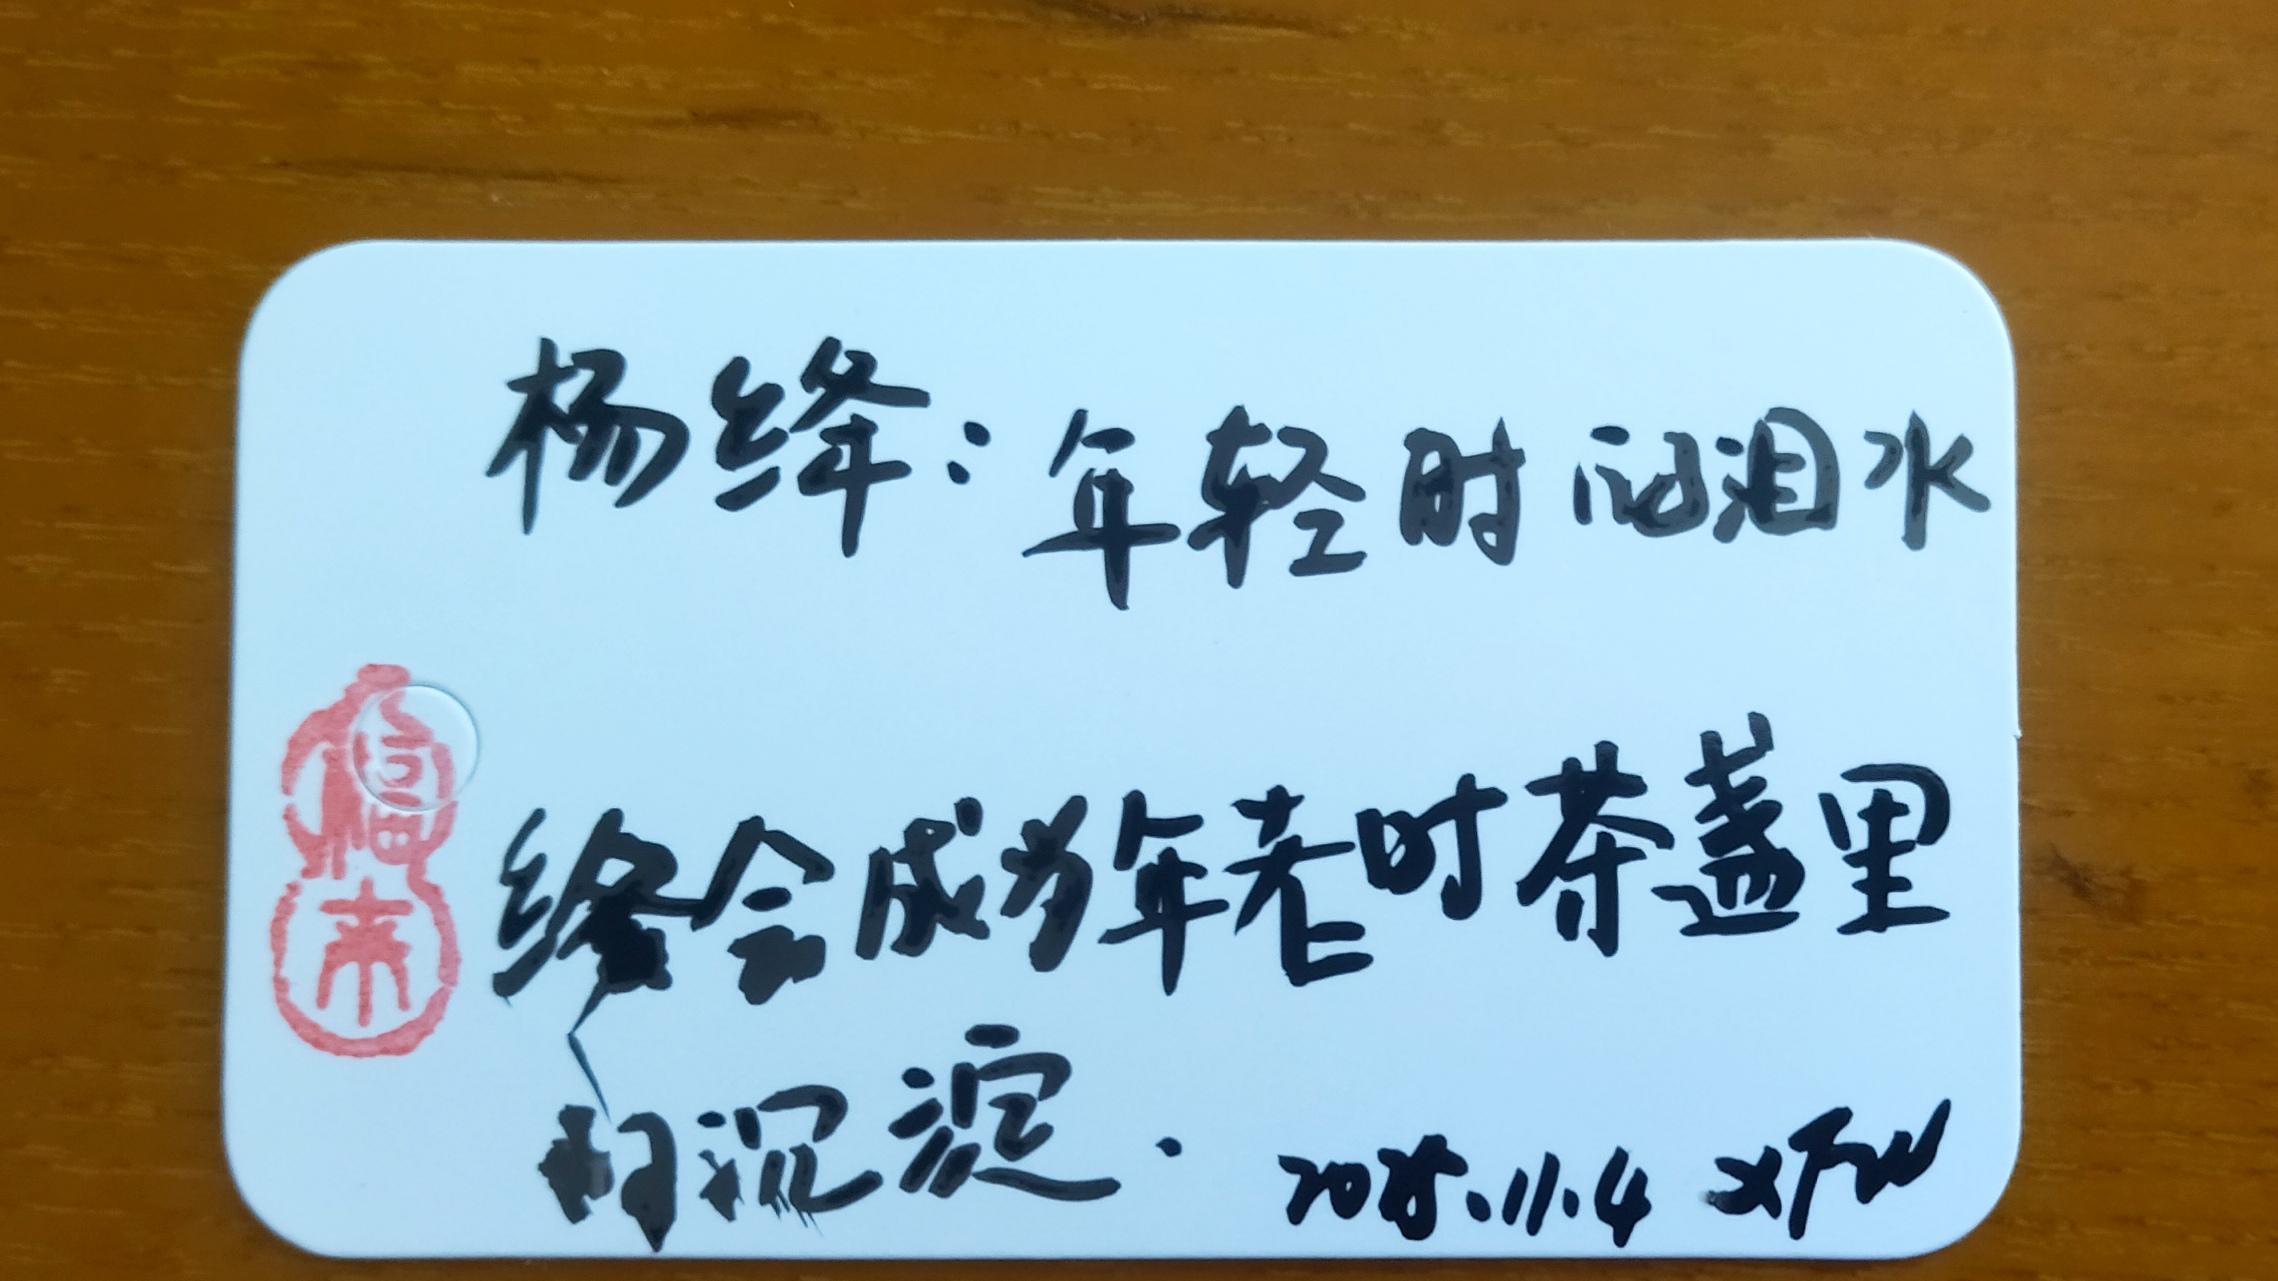 杨绛：年轻时的泪水
终会成为年老时茶盏里
的沉淀.
2025.11.4 XFW
福
来